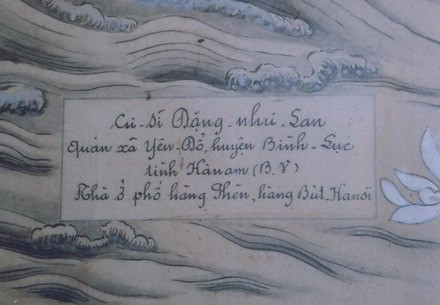 Cư-Sĩ Đặng-như-Lan
Quán xã Yên-Đổ, huyện Bình-Lục
tỉnh Hànam (B.V)
Nhà ở phố hàng Thèn, hàng Bút_Hanôi